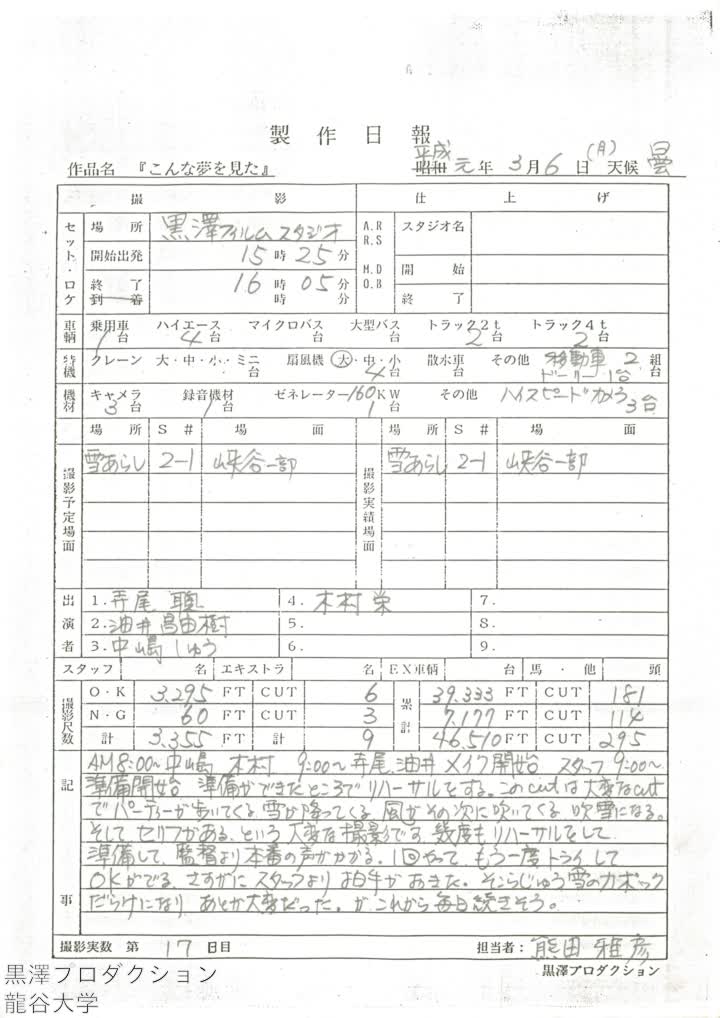 製作日報
作品名 『こんな夢を見た』 平成 昭和 元年 3月 6日 (月) 天候 曇
撮影 仕上げ
セット・ロケ 場所 黒澤フィルムスタジオ A.R R.S スタジオ名
開始出発 15時 25分 M.D O.B 開始
終了 16時 05分 終了
到着 時 分
車輌 乗用車 1台 ハイエース 4台 マイクロバス 大型バス トラック2t 2台 トラック4t 2台
特機 クレーン 大・中・小・ミニ 扇風機 大・中・小 4台 散水車 台 その他 移動車 2組 ドーリー 1台
機材 キャメラ 3台 録音機材 1台 ゼネレーター 160KW 1台 その他 ハイスピードカメラ 3台
場所 S# 場面 場所 S# 場面
撮影予定場面 雪あらし 2-1 峡谷一部 撮影実績場面 雪あらし 2-1 峡谷一部
出演者 1.寺尾 聰 4.木村 栄 7.
2.油井昌由樹 5. 8.
3.中嶋しゅう 6. 9.
スタッフ 名 エキストラ 名 EX車輌 台 馬・他 頭
撮影尺数 O・K 3,295 FT CUT 6 累計 39,333 FT CUT 181
N・G 60 FT CUT 3 7,177 FT CUT 114
計 3,355 FT 計 9 46,510 FT CUT 295
記事 AM8:00~中嶋 木村 9:00~寺尾 油井 メイク開始 スタッフ 9:00~
準備開始 準備ができたところでリハーサルをする。このcutは大変なcut
でパーティーが歩いてくる 雪が降ってくる 風がその次に吹いてくる 吹雪になる。
そして セリフがある、という大変な撮影です。幾度もリハーサルをして
準備して、監督より本番の声がかかる。1回やって、もう一度トライして
OKがでる。さすがに スタッフより拍手がおきた。そこらじゅう雪のカポック
だらけになり あとが大変だった。が これから毎日続きそう。
撮影実数 第 17 日目 担当者: 熊田雅彦
黒澤プロダクション
黒澤プロダクション
龍谷大学